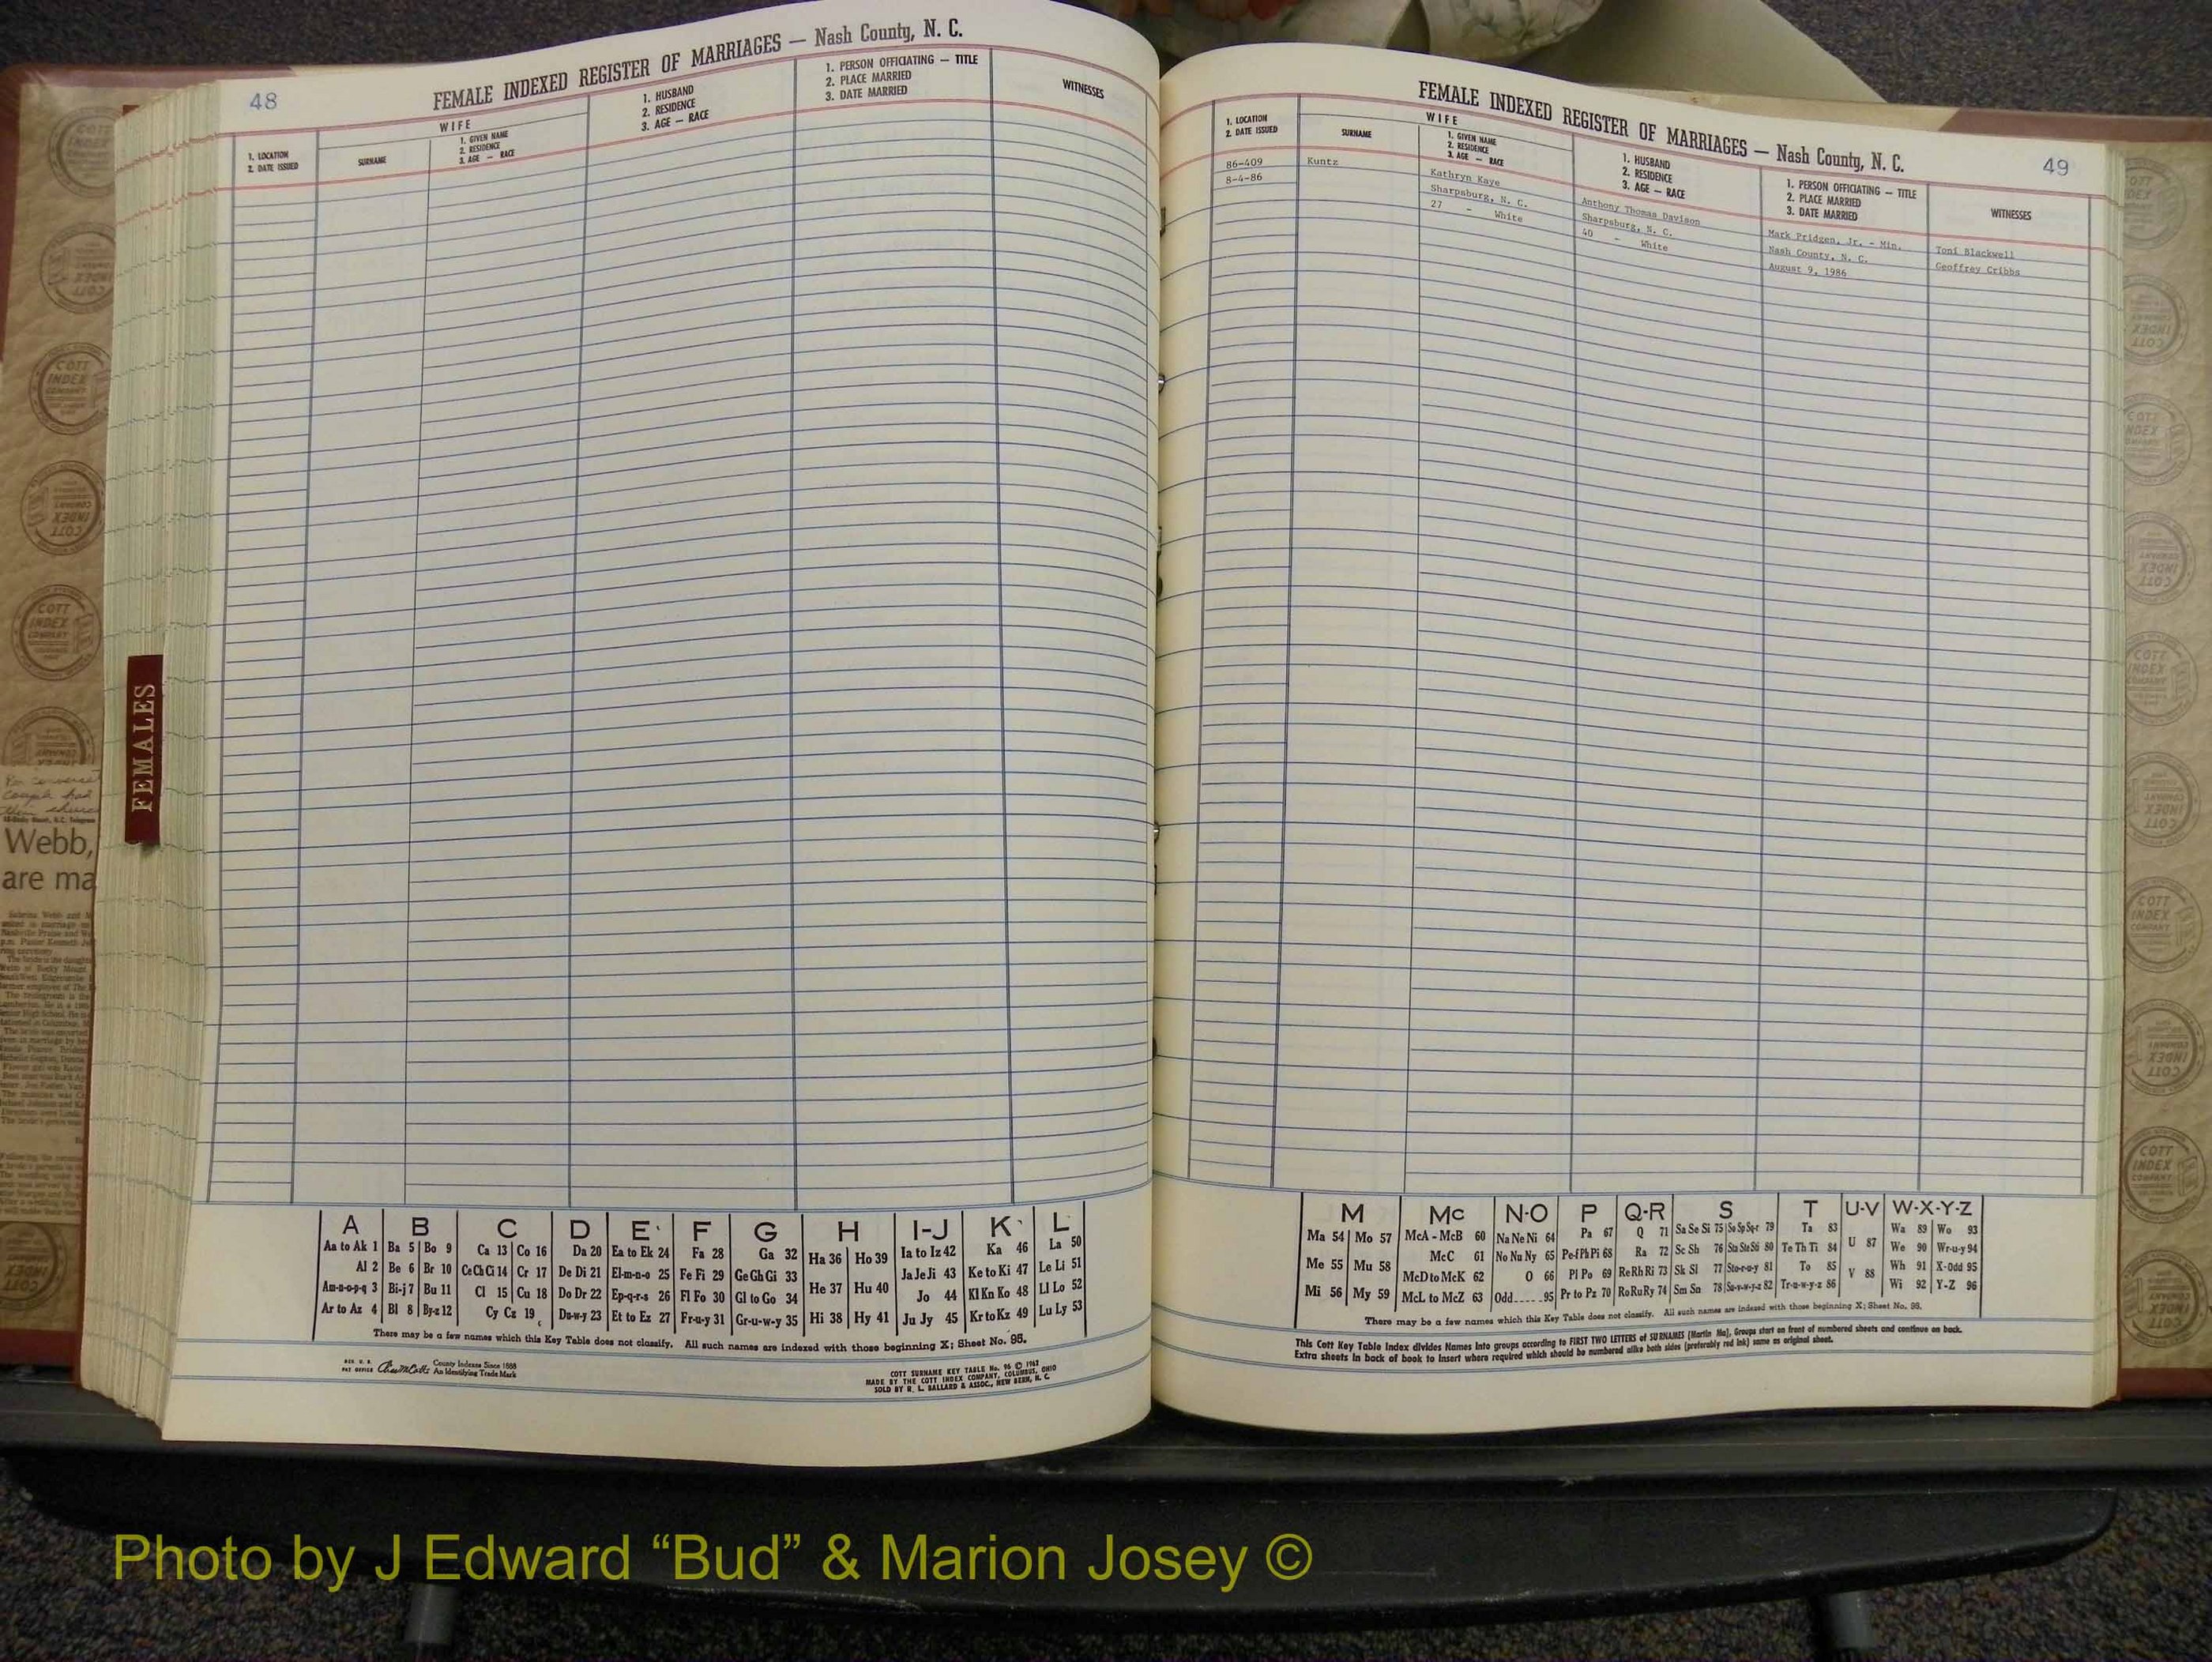 48
FEMALE INDEXED REGISTER OF MARRIAGES — Nash County, N. C.
1. LOCATION
2. DATE ISSUED
WIFE
SURNAME
1. GIVEN NAME
2. RESIDENCE
3. AGE — RACE
1. HUSBAND
2. RESIDENCE
3. AGE — RACE
1. PERSON OFFICIATING — TITLE
2. PLACE MARRIED
3. DATE MARRIED
WITNESSES
FEMALES
Webb,
are ma
A B C D E F G H I-J K L
Aa to Ak 1 Ba 5 Bo 9 Ca 13 Co 16 Da 20 Ea to Ek 24 Fa 28 Ga 32 Ha 36 Ho 39 Ia to Iz 42 Ka 46 La 50
Al 2 Be 6 Br 10 Ce Ch Ci 14 Cr 17 De Di 21 El-m-n-o 25 Fe Fi 29 Ge Gh Gi 33 He 37 Hu 40 Ja Je Ji 43 Ke to Ki 47 Le Li 51
Am-n-o-p-q 3 Bi-j 7 Bu 11 Cl 15 Cu 18 Do Dr 22 Ep-q-r-s 26 Fl Fo 30 Gl to Go 34 Hi 38 Hy 41 Jo 44 Kl Kn Ko 48 Ll Lo 52
Ar to Az 4 Bl 8 By-z 12 Cy Cz 19 Du-w-y 23 Et to Ez 27 Fr-u-y 31 Gr-u-w-y 35 Ju Jy 45 Kr to Kz 49 Lu Ly 53
There may be a few names which this Key Table does not classify. All such names are indexed with those beginning X; Sheet No. 95.
REG. U. S.
PAT OFFICE
County Indexes Since 1888
An Identifying Trade Mark
COTT SURNAME KEY TABLE No. 96 © 1967
MADE BY THE COTT INDEX COMPANY, COLUMBUS, OHIO
SOLD BY R. L. BALLARD & ASSOC., NEW BERN, N. C.
FEMALE INDEXED REGISTER OF MARRIAGES — Nash County, N. C.
49
1. LOCATION
2. DATE ISSUED
WIFE
SURNAME
1. GIVEN NAME
2. RESIDENCE
3. AGE — RACE
1. HUSBAND
2. RESIDENCE
3. AGE — RACE
1. PERSON OFFICIATING — TITLE
2. PLACE MARRIED
3. DATE MARRIED
WITNESSES
86-409 Kuntz Kathryn Kaye Anthony Thomas Davison Mark Pridgen, Jr. - Min. Toni Blackwell
8-4-86 Sharpsburg, N. C. Sharpsburg, N. C. Nash County, N. C. Geoffrey Cribbs
27 - White 40 - White August 9, 1986
M Mc N-O P Q-R S T U-V W-X-Y-Z
Ma 54 Mo 57 McA - McB 60 Na Ne Ni 64 Pa 67 Q 71 Sa Se Si 75 So Sp Sq-r 79 Ta 83 U 87 Wa 89 Wo 93
Me 55 Mu 58 McC 61 No Nu Ny 65 Pe-f Ph Pi 68 Ra 72 Sc Sh 76 Sta Ste Sti 80 Te Th Ti 84 V 88 We 90 Wr-u-y 94
Mi 56 My 59 McD to McK 62 O 66 Pl Po 69 Re Rh Ri 73 Sk Sl 77 Sto-r-u-y 81 To 85 Wh 91 X-Odd 95
McL to McZ 63 Odd.....95 Pr to Pz 70 Ro Ru Ry 74 Sm Sn 78 Su-v-w-y-z 82 Tr-u-w-y-z 86 Wi 92 Y-Z 96
There may be a few names which this Key Table does not classify. All such names are indexed with those beginning X; Sheet No. 95.
This Cott Key Table Index divides Names into groups according to FIRST TWO LETTERS of SURNAMES (Martin Ma), Groups start on front of numbered sheets and continue on back.
Extra sheets in back of book to insert where required which should be numbered alike both sides (preferably red ink) same as original sheet.
Photo by J Edward “Bud” & Marion Josey ©